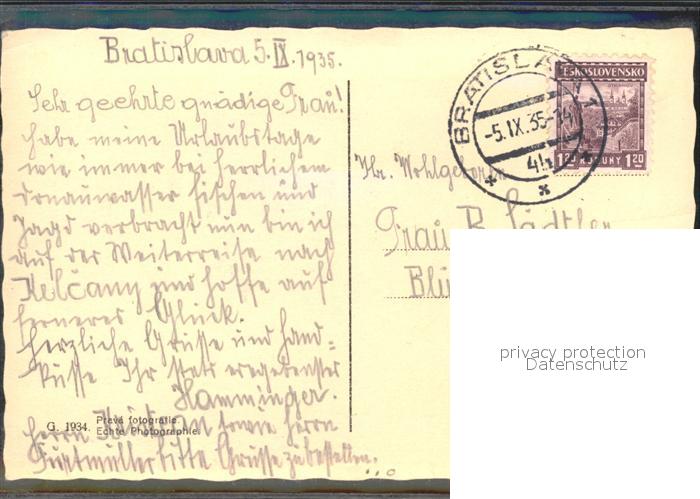 Bratislava 5. IX. 1935.
Sehr geehrte gnädige Frau!
habe meine Urlaubstage
wie immer bei herrlichem
Donauwasser fischen und
Jagd verbracht nun bin ich
auf der Weiterreise nach
Kelčany und hoffe auf
ferneres Glück.
herzliche Grüsse und Hand-
küsse Ihr stets ergebenster
Hamminger.
G. 1934. Pravá fotografie.
Echte Photographie.
herrn sowie herrn
bitte Grüsse zu bestellen.
BRATISLAVA 1
-5.IX.35-14
4h
ČESKOSLOVENSKO
1.20 KORUNY 1.20
Wohlgeboren
Frau B.
privacy protection
Datenschutz